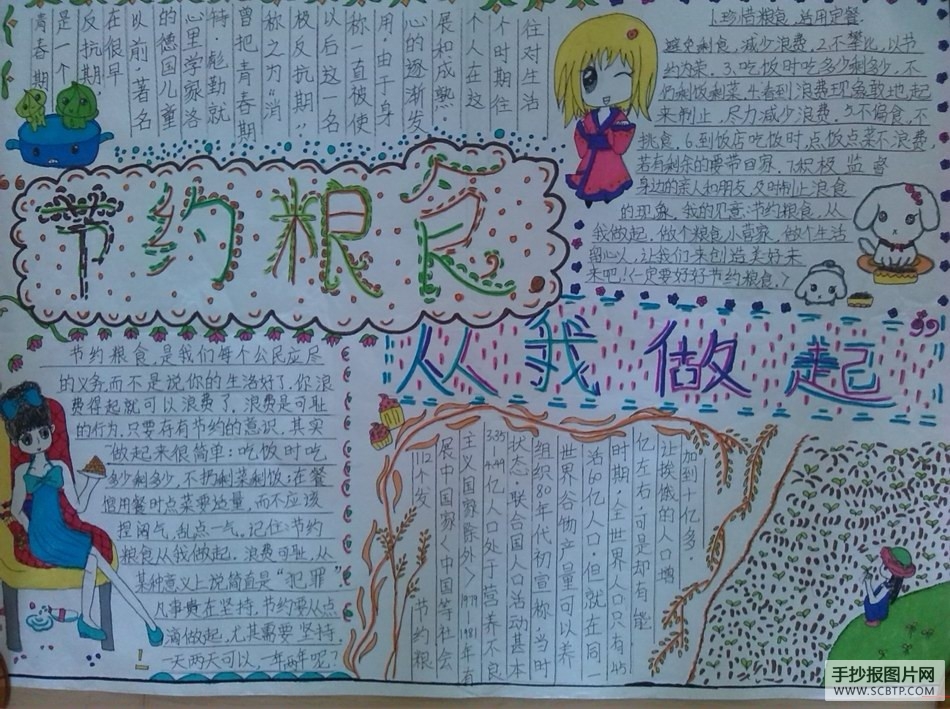 青春期
是一个
反抗期
在很早
以前著名
的德国儿童
心里学家洛
特·彪勒就
曾把青春期
称之为“消
极反抗期”
以后这一名
称一直被使
用·由于身
心的逐渐发
展和成熟·
个人在这
个时期往
往对生活
1.珍惜粮食,适用定餐.
避免剩食,减少浪费.2.不攀比,以节
约为荣.3.吃饭时吃多少剩多少,不
扔剩饭剩菜.4.看到浪费现象敢地起
来制止,尽力减少浪费.5.不偏食,不
挑食.6.到饭店吃饭时,点饭点菜不浪费,
若有剩余的要带回家.7.积极监督
身边的亲人和朋友及时制止浪食
的现象.我的见意:节约粮食,从
我做起,做个粮食小管家,做个生活
留心人,让我们来创造美好未
来吧!(一定要好好节约粮食!)
节约粮食
从我做起
节约粮食,是我们每个公民应尽
的义务而不是说你的生活好了,你浪
费得起就可以浪费了.浪费是可耻
的行为,只要存有节约的意识,其实
做起来很简单:吃饭时吃
多少剩多少,不扔剩菜剩饭;在餐
馆用餐时点菜要适量,而不应该
捏阔气,乱点一气。记住:节约
粮食从我做起,浪费可耻,从
某种意义上说简直是“犯罪”
凡事贵在坚持,节约要从点
滴做起,尤其需要坚持.
一天两天可以,一年两年呢?
112个发 节约粮
展中国家<中国等社会
主义国家除外>1979 1981年有
3.35-4.44亿人口处于营养不良
状态·联合国人口活动甚本
组织80年代初宣称,当时
世界谷物产量可以养
活60亿人口·但就在同一
时期,全世界人口只有45
亿左右,可是却有能
让挨饿的人口增
加到十亿多·
手抄报图片网
WWW.SCBTP.COM